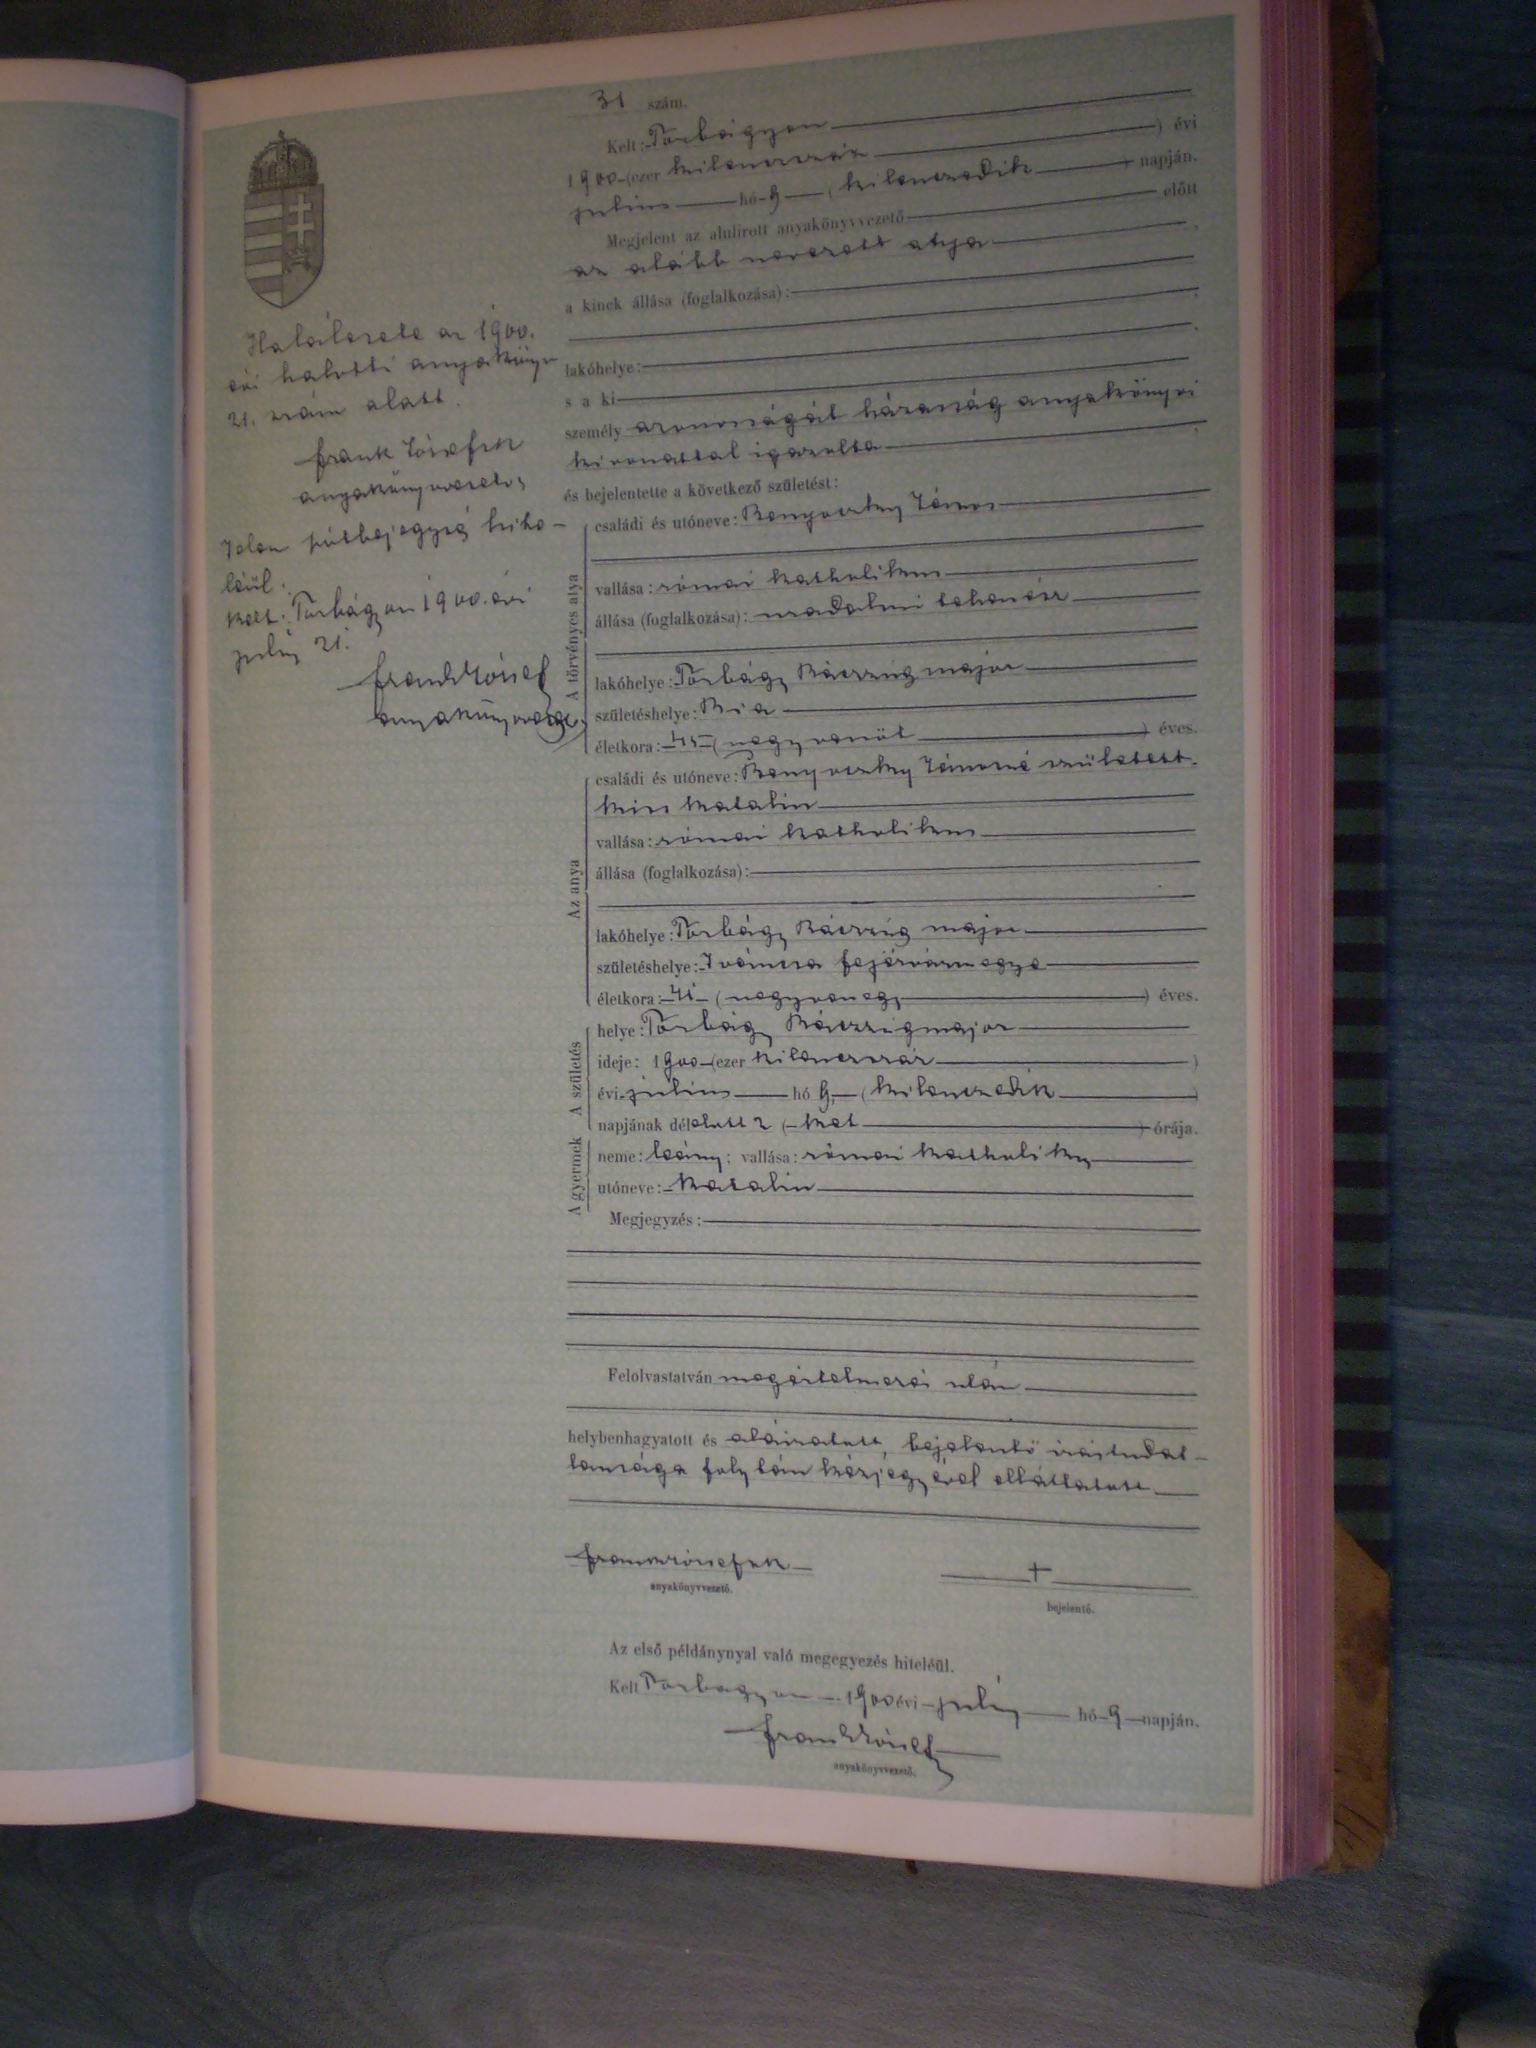 31 szám.
Kelt: Torbágyon
1900 (ezer kilenczszáz ) évi
julius hó 9 ( kilenczedik ) napján.
Megjelent az alulirott anyakönyvvezető előtt
az alább nevezett atyja
a kinek állása (foglalkozása):
lakóhelye:
s a ki
személy azonosságát házasság anyakönyvi
kivonattal igazolta
és bejelentette a következő születést:
A törvényes atya
családi és utóneve: János
vallása: római katholikus
állása (foglalkozása): uradalmi tehenész
lakóhelye: Torbágy major
születéshelye: Bia
életkora: 45 ( negyvenöt ) éves.
Az anya
családi és utóneve: Jánosné született
Kiss Katalin
vallása: római katholikus
állása (foglalkozása):
lakóhelye: Torbágy major
születéshelye: Iváncsa fejérvármegye
életkora: 41 ( negyvenegy ) éves.
A születés
helye: Torbágy major
ideje: 1900 (ezer kilenczszáz )
évi julius hó 9 ( kilenczedik )
napjának délelutt 2 ( ket ) órája.
A gyermek
neme: leány; vallása: római katholikus
utóneve: Katalin
Megjegyzés:
Felolvastatván megértelmezés után
helybenhagyatott és aláiratott, bejelentő irástudat-
lansága folytán kézjegyével elláttatott
Frank Józsefsk
anyakönyvvezető.
+
bejelentő.
Az első példánynyal való megegyezés hiteléül.
Kelt Torbágyon 1900 évi july hó 9 napján.
Frank József
anyakönyvvezető.
Halálesete az 1900.
évi halotti anyakönyv
21. szám alatt.
Frank József sk
anyakönyvvezető
Jelen utóbejegyzés hite-
léül:
Kelt: Torbágyon 1900. évi
july 21.
Frank József
anyakönyvvezető